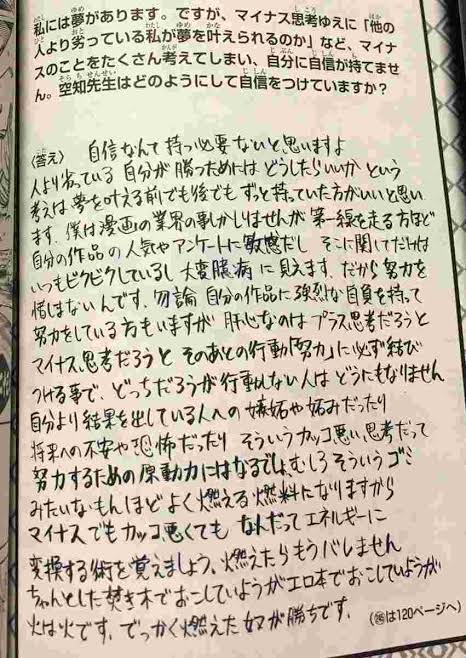 私には夢があります。ですが、マイナス思考ゆえに「他の
人より劣っている私が夢を叶えられるのか」など、マイナ
スのことをたくさん考えてしまい、自分に自信が持てませ
ん。空知先生はどのようにして自信をつけていますか？
〈答え〉 自信なんて持つ必要ないと思いますよ
人より劣っている自分が勝つためにはどうしたらいいかという
考えは夢を叶える前でも後でもずっと持っていた方がいいと思い
ます。僕は漫画の業界の事しかしりませんが第一線を走る方ほど
自分の作品の人気やアンケートに敏感だし そこに関してだけは
いつもビクビクしているし大変臆病に見えます。だから努力を
惜しまないんです。勿論自分の作品に強烈な自負を持って
努力をしている方もいますが肝心なのはプラス思考だろうと
マイナス思考だろうと そのあとの行動「努力」に必ず結び
つける事で、どっちだろうが行動しない人はどうにもなりません
自分より結果を出している人への嫉妬や妬みだったり
将来への不安や恐怖だったり そういうカッコ悪い思考だって
努力するための原動力にはなるでしょ むしろそういうゴミ
みたいなもんほどよく燃える燃料になりますから
マイナスでもカッコ悪くても なんだってエネルギーに
変換する術を覚えましょう、燃えたらもうバレません
ちゃんとした焚き木でおこしていようがエロ本でおこしていようが
火は火です。でっかく燃えた奴が勝ちです。
(㊙は120ページへ)